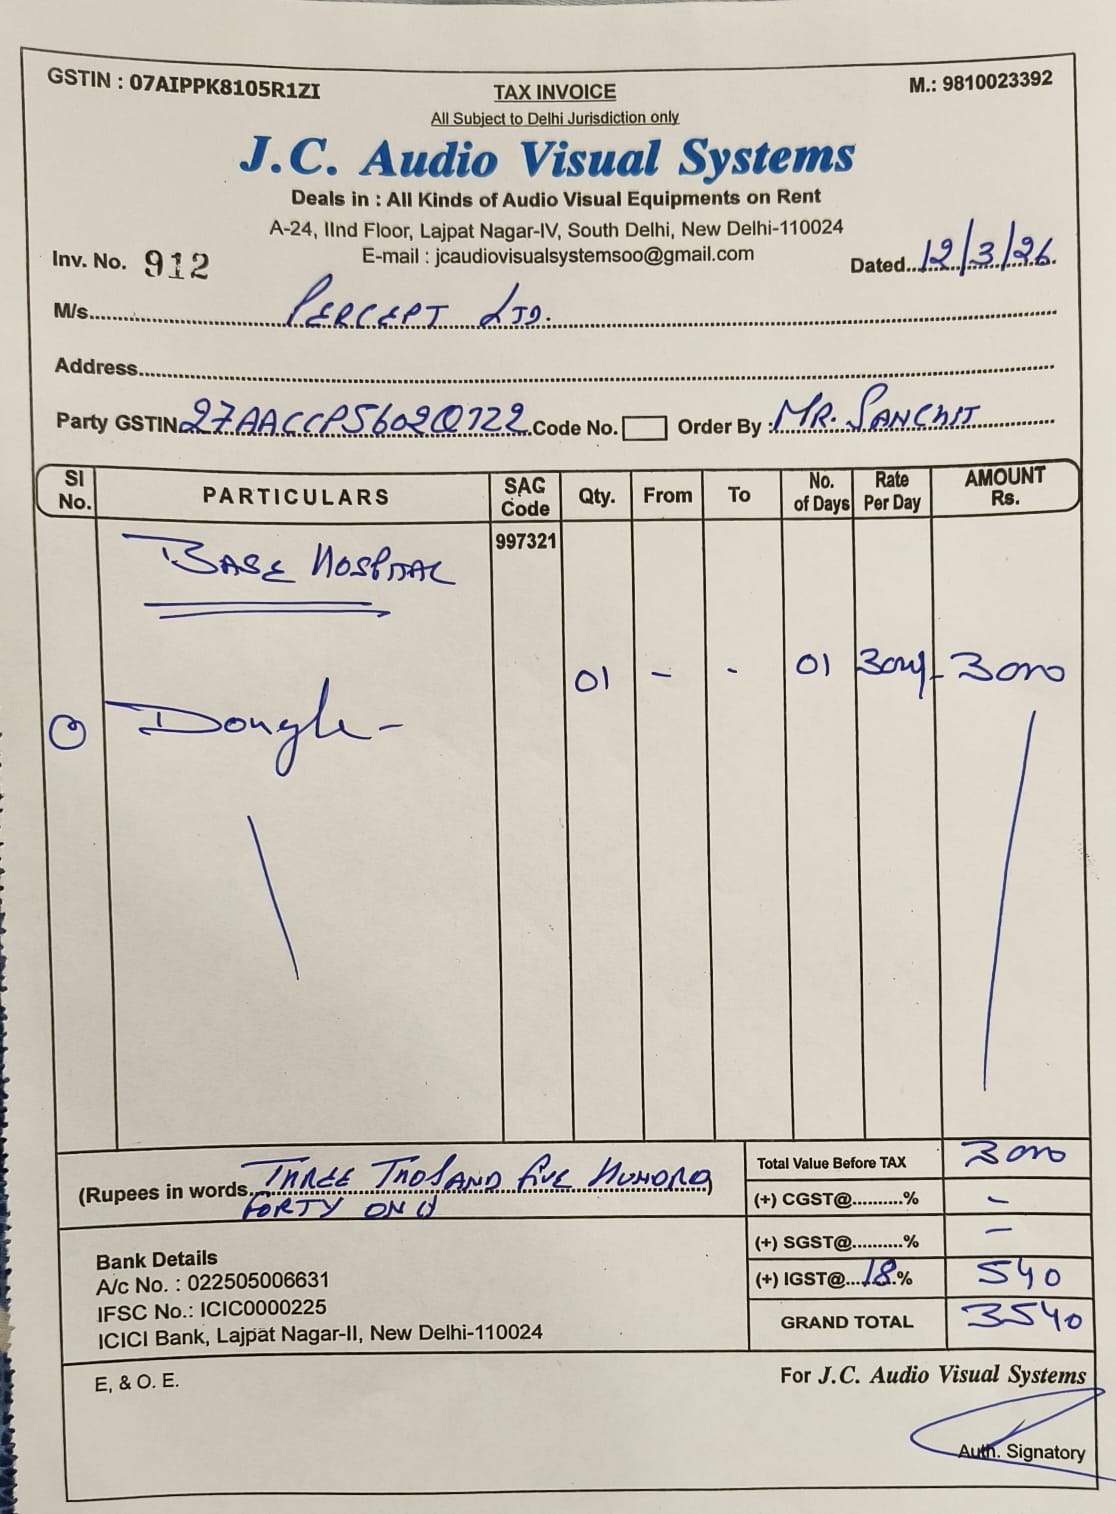 GSTIN : 07AIPPK8105R1ZI
TAX INVOICE
M.: 9810023392
All Subject to Delhi Jurisdiction only
J.C. Audio Visual Systems
Deals in : All Kinds of Audio Visual Equipments on Rent
A-24, IInd Floor, Lajpat Nagar-IV, South Delhi, New Delhi-110024
E-mail : jcaudiovisualsystemsoo@gmail.com
Inv. No. 912
Dated 12/3/26
M/s PERCEPT LTD.
Address
Party GSTIN 27AACCP5602Q1Z2 Code No. Order By : MR. SANCHIT
SI No. PARTICULARS SAC Code Qty. From To No. of Days Rate Per Day AMOUNT Rs.
BASE HOSPITAL 997321
Dongle - 01 - - 01 3000/- 3000
Total Value Before TAX 3000
(Rupees in words THREE THOSAND FIVE HUNDRD
FORTY ONLY
(+) CGST@..........% -
(+) SGST@..........% -
(+) IGST@....18.% 540
GRAND TOTAL 3540
Bank Details
A/c No. : 022505006631
IFSC No.: ICIC0000225
ICICI Bank, Lajpat Nagar-II, New Delhi-110024
E, & O. E.
For J.C. Audio Visual Systems
Auth. Signatory